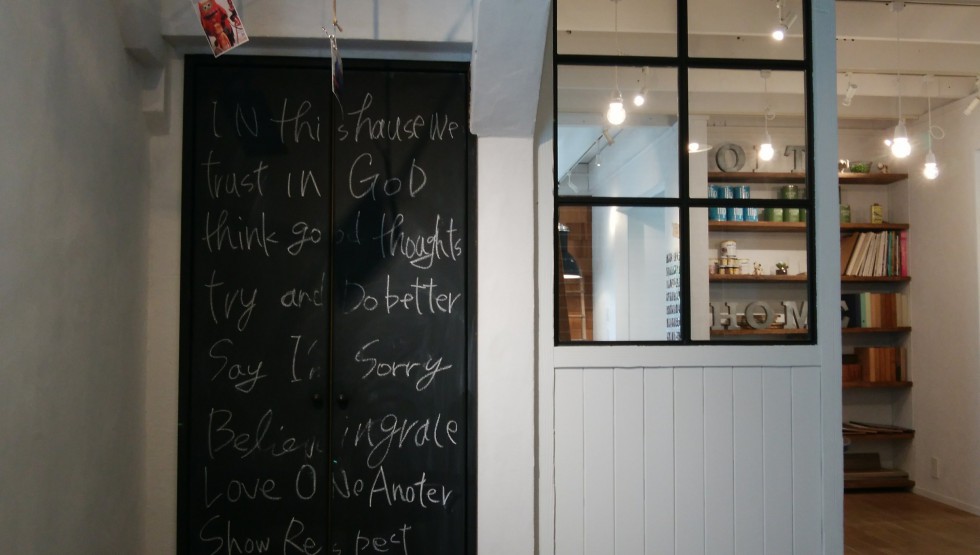 IN this hause we
trust in GOD
think good thoughts
try and Do better
Say I'm Sorry
Believ ingrale
Love ONe Anoter
Show Respect
HOME